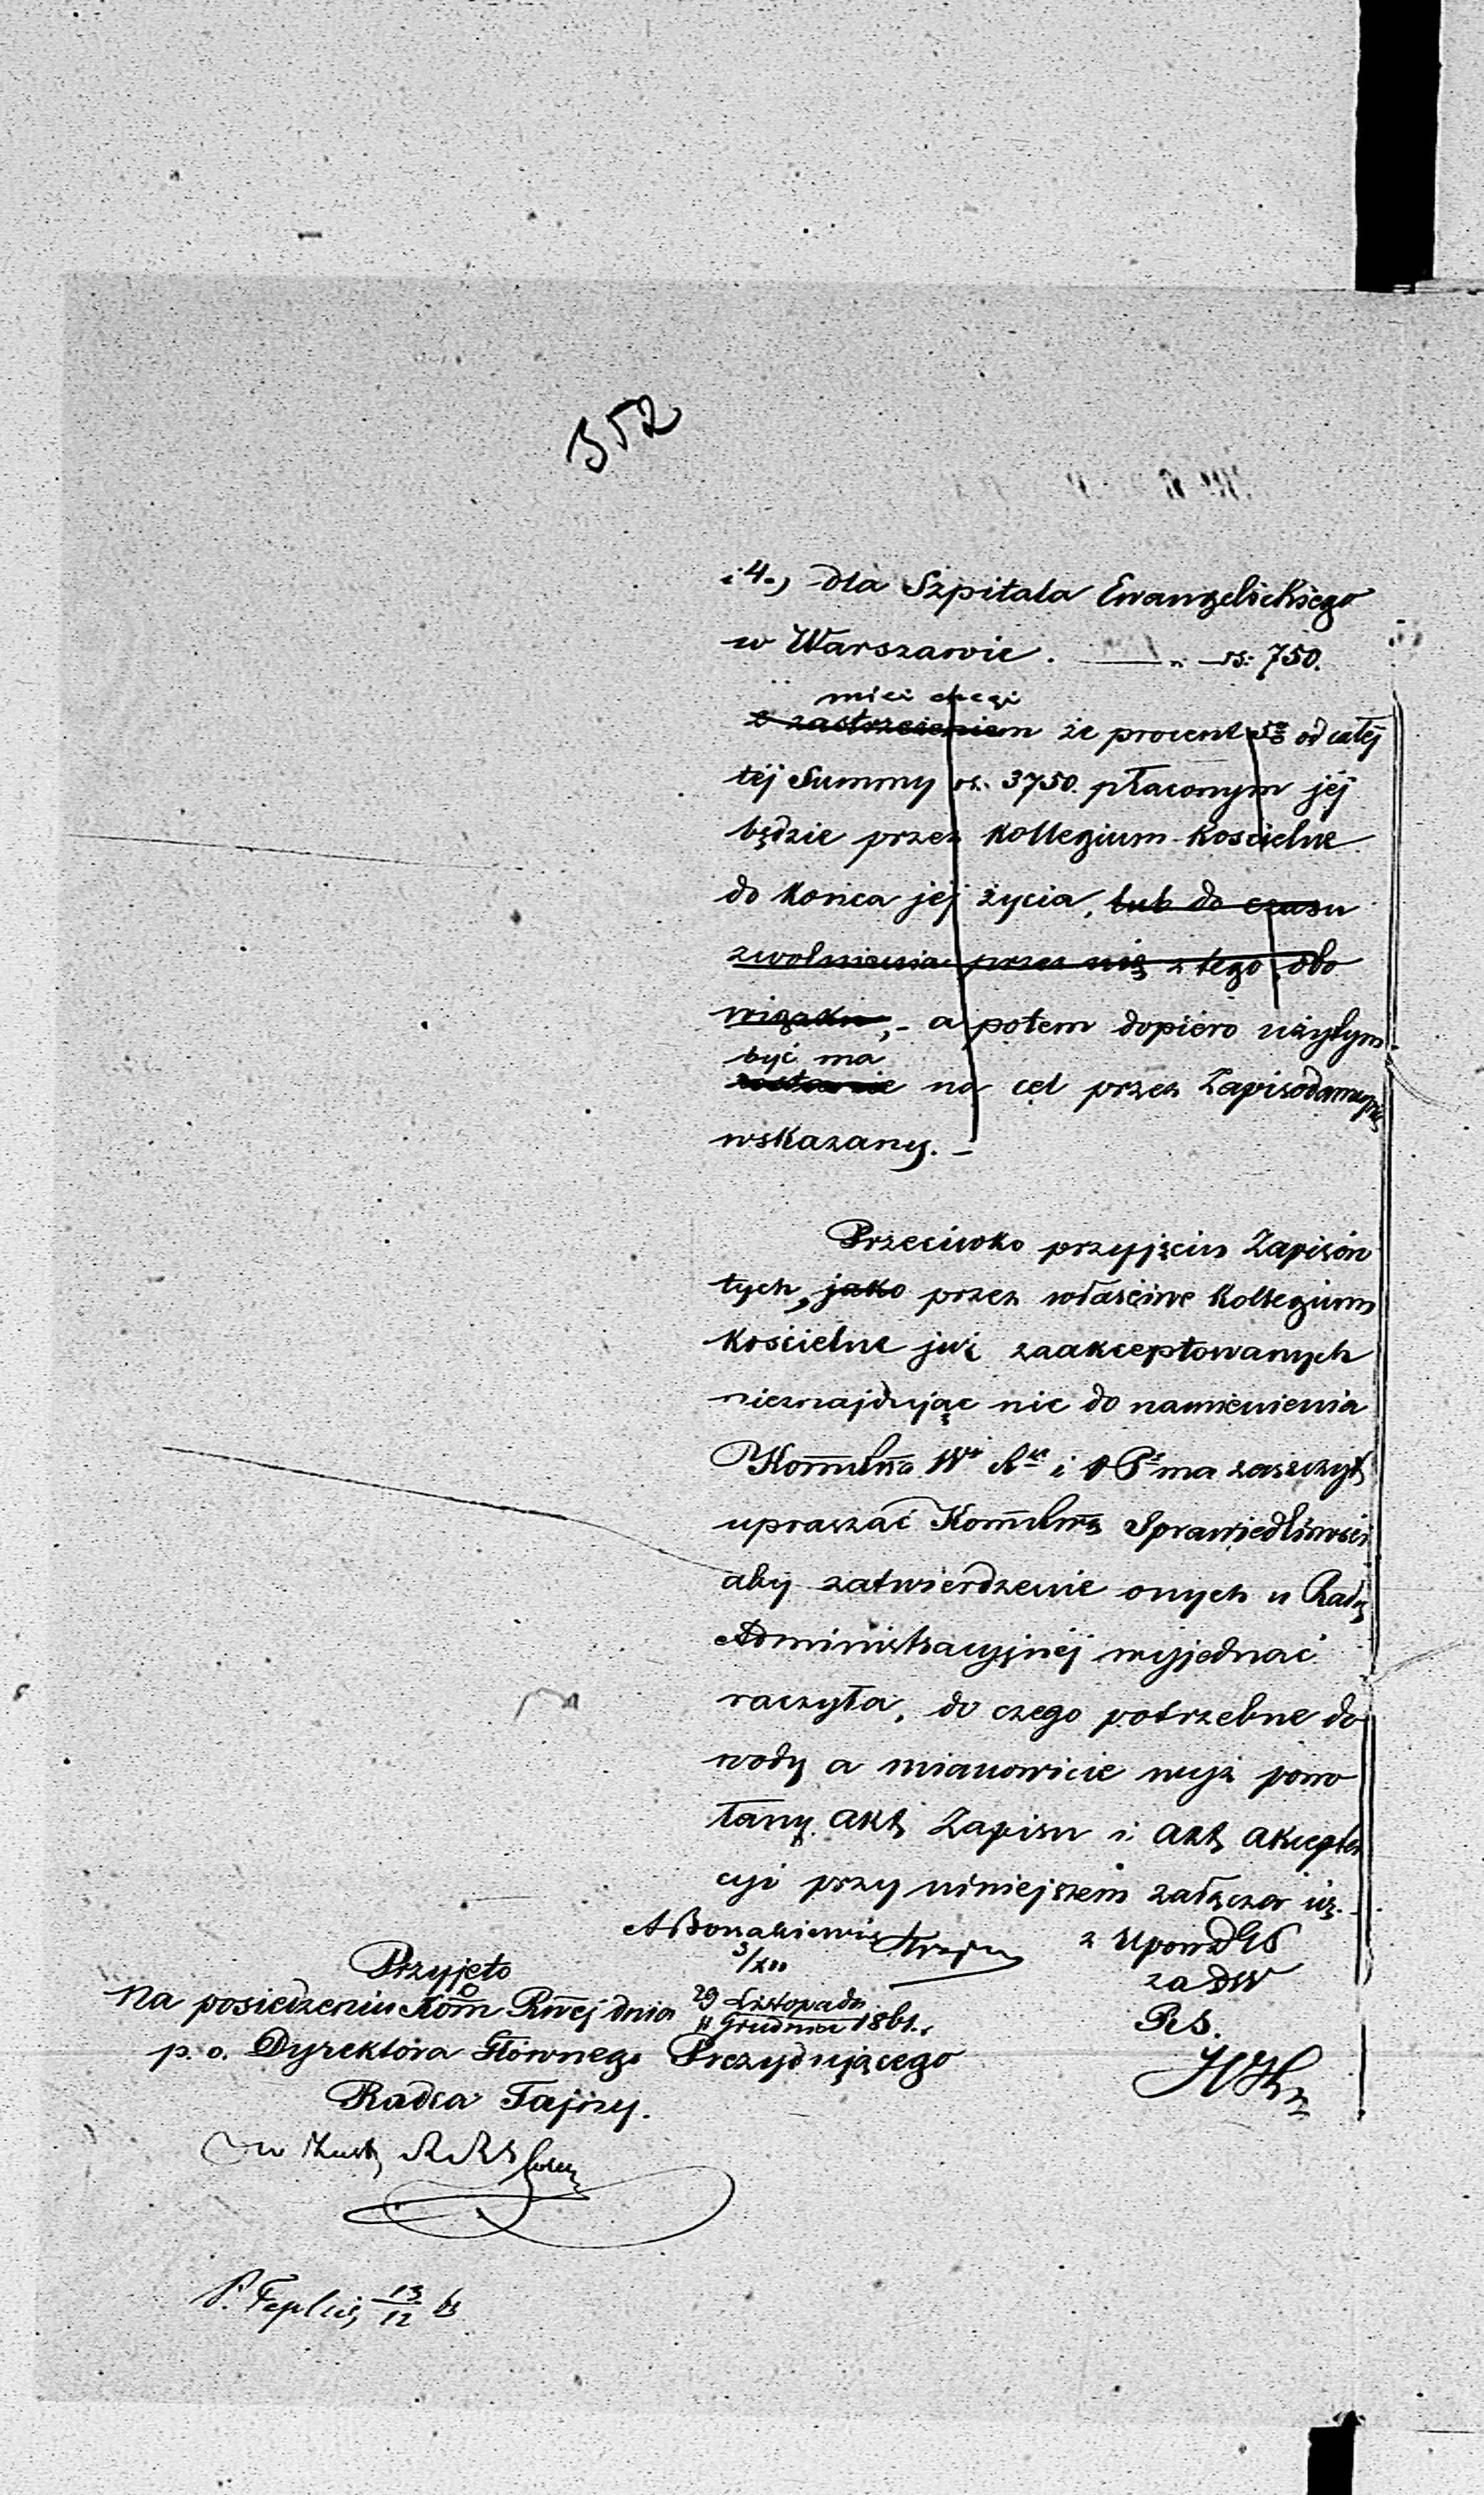 352
i 4., dla Szpitala Ewangelickiego
w Warszawie. — „ — rs: 750.
mieć chcąc
z zastrzeżeniem że procent 5% od całej
tej Summy rs. 3750. płaconym jej
będzie przez Kollegium Kościelne
do końca jej życia, lub do czasu
zwolnienia przez nią z tego obo
wiązku, - a potem dopiero użytym
być ma
zostanie na cel przez Zapisodawczynię
wskazany. -
Przeciwko przyjęciu Zapisów
tych, jako przez właściwe Kollegium
Kościelne już zaakceptowanych
nieznajdując nic do namienienia
ma zaszczyt
upraszać Sprawiedliwości
aby zatwierdzenie onych u Rady
Administracyjnéj wyjednać
raczyła, do czego potrzebne do
wody a mianowicie wyż powo
łany Akt Zapisu i Akt Akcepta
cyi przy niniejszem załącza się.
z Upow DGS
za DW
Rs.
3/XII
Przyjęto
Na posiedzeniu Kom̃ Rz̃ej dnia 29 Listopada
11 Grudnia 1861.
p. o. Dyrektora Głównego Prezydującego
Radca Tajny.
13/12